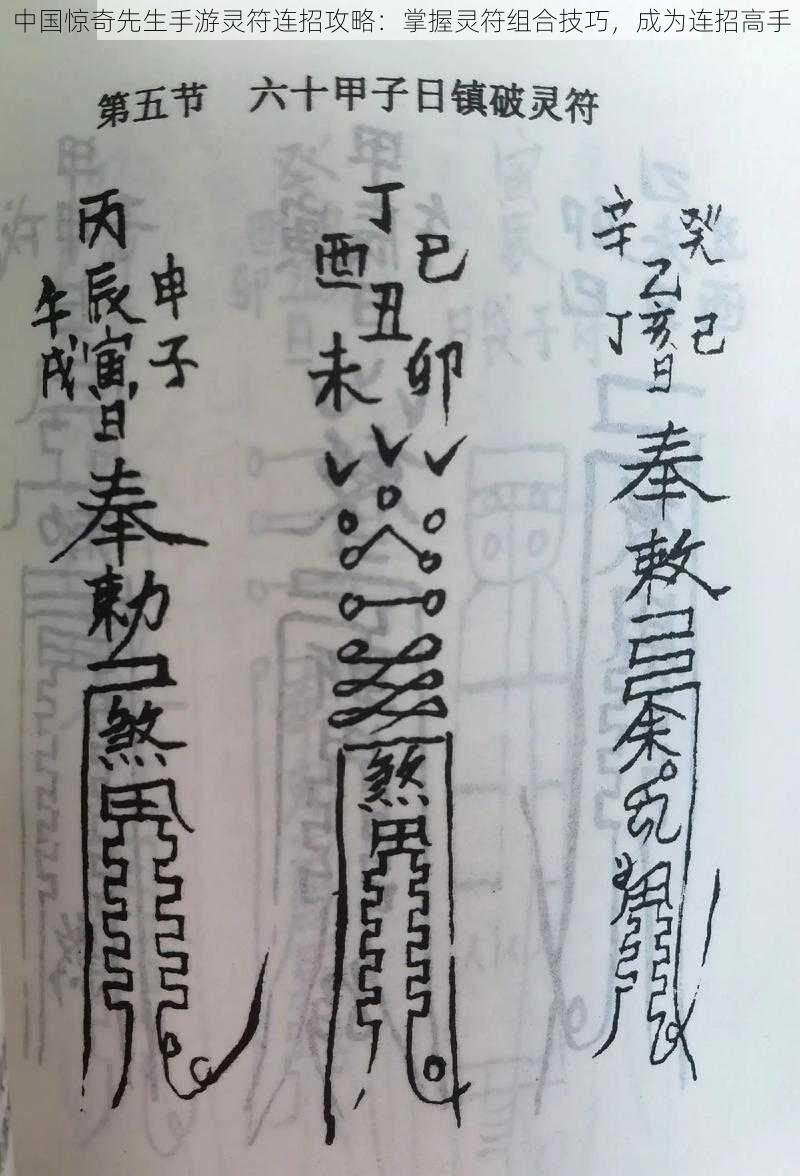 中国惊奇先生手游灵符连招攻略：掌握灵符组合技巧，成为连招高手
第五节 六十甲子日镇破灵符
丙
午辰申
戌寅子
日
奉
勅
煞
丁
酉巳
丑
未卯
煞
辛癸
乙
丁亥己
日
奉
敕